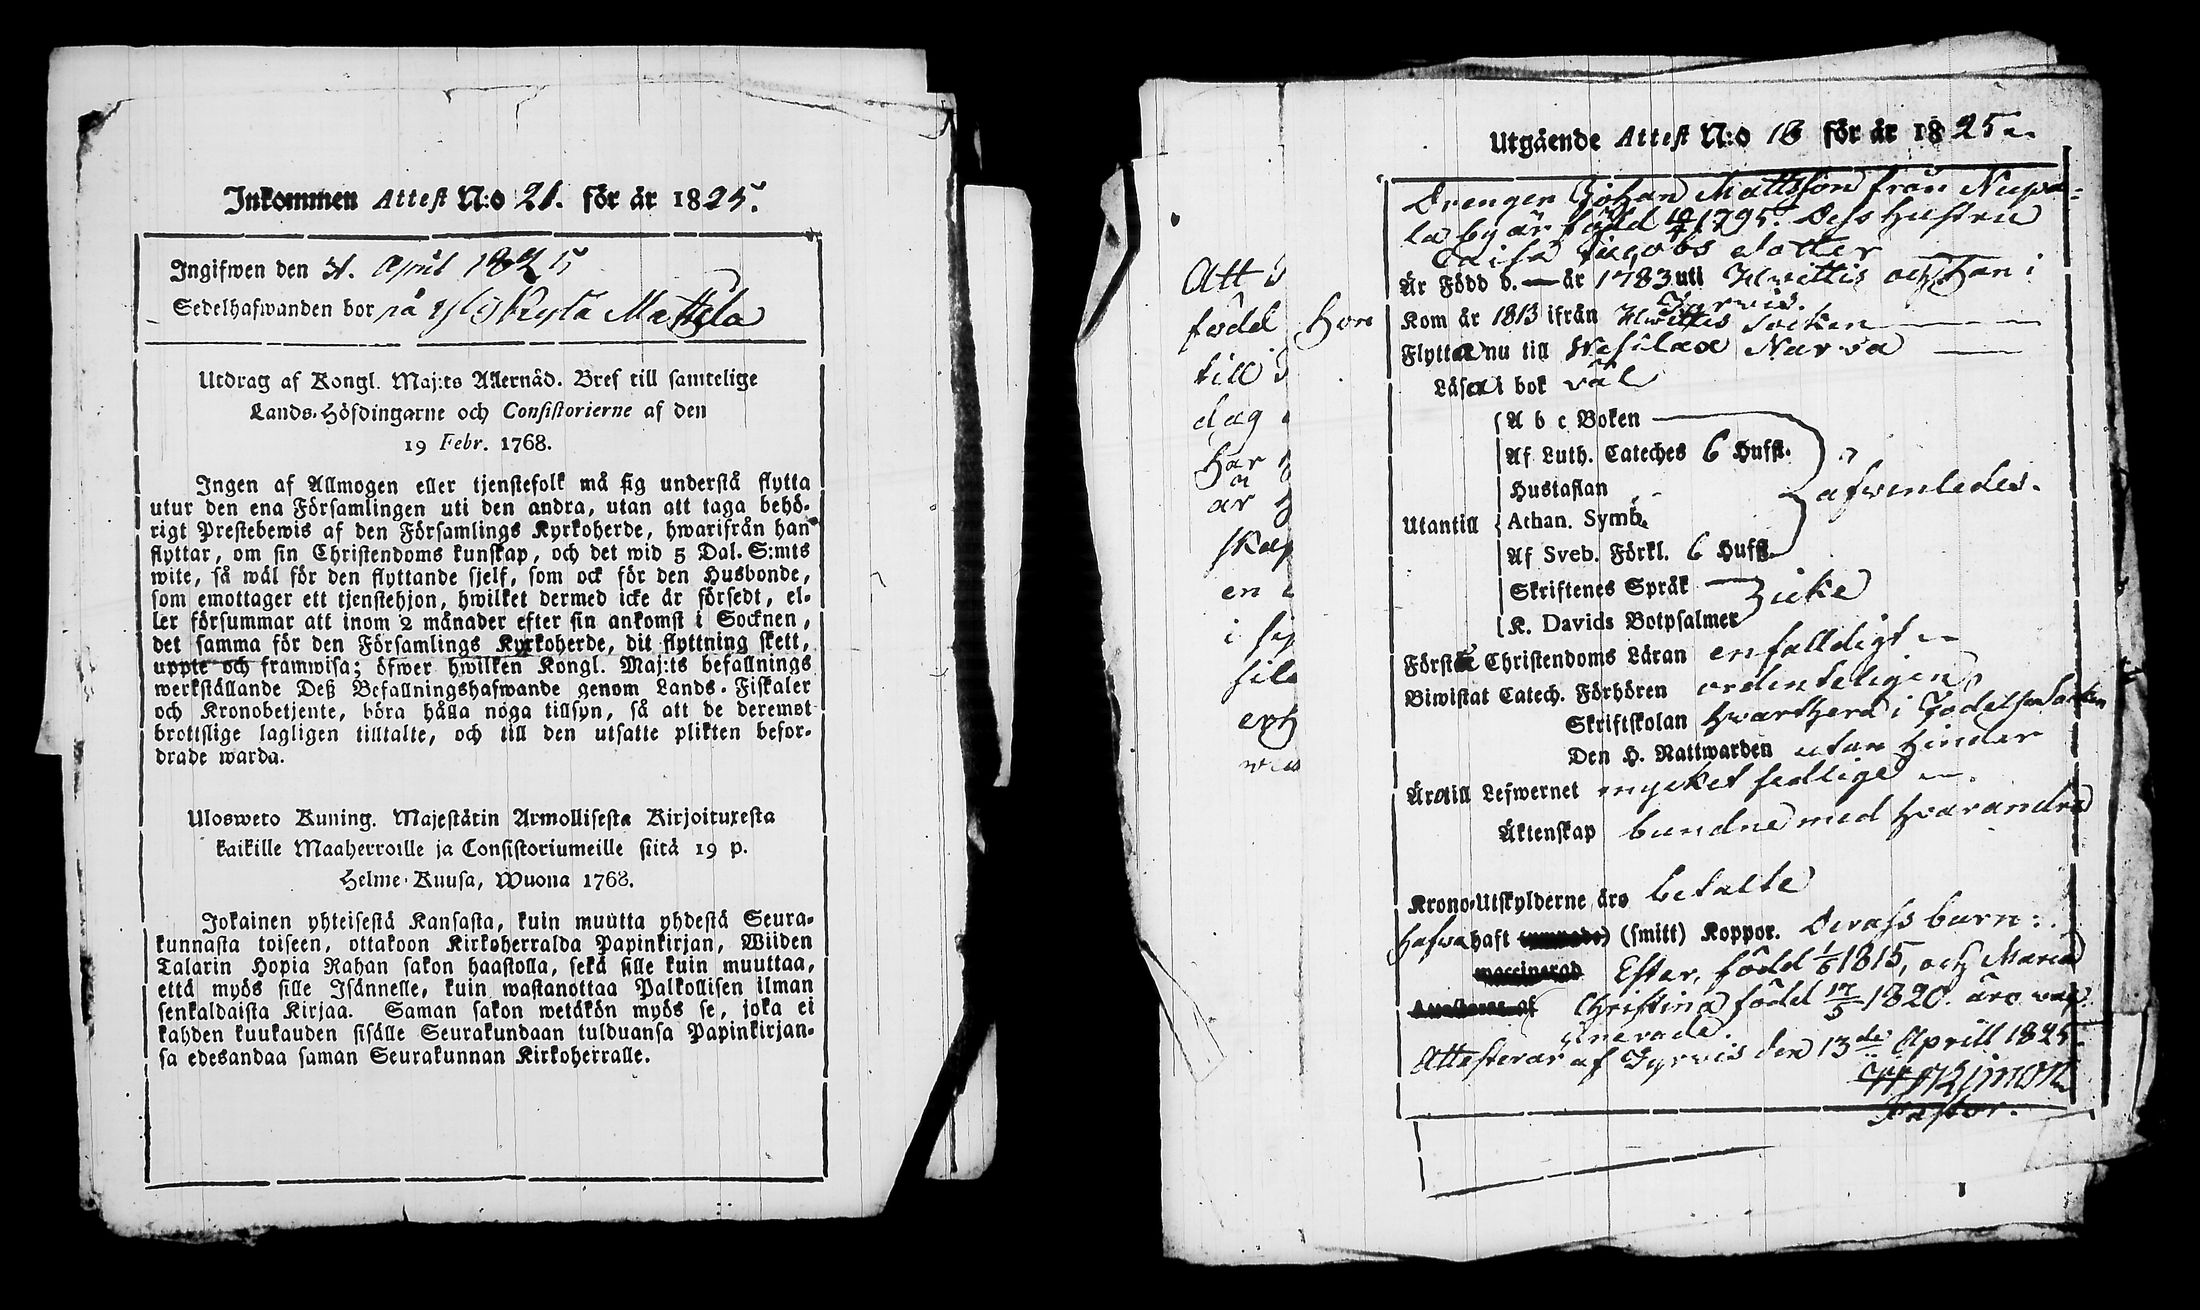 Inkommen Attest N:o 21. för år 1825.
Ingifwen den 31. April 1825
Sedelhafwanden bor på Kylä Mattila
Utdrag af Kongl. Maj:ts Allernåd. Bref till samtelige
Lands-Höfdingarne och Consistorierne af den
19 Febr. 1768.
Ingen af Allmogen eller tjenstefolk må sig understå flytta
utur den ena Församlingen uti den andra, utan att taga behö-
rigt Prestebewis af den Församlings Kyrkoherde, hwarifrån han
flyttar, om sin Christendoms kunskap, och det wid 5 Dal. S:mts
wite, så wäl för den flyttande sjelf, som ock för den Husbonde,
som emottager ett tjenstehjon, hwilket dermed icke är försedt, el-
ler försummar att inom 2 månader efter sin ankomst i Socknen,
det samma för den Församlings Kyrkoherde, dit flyttning skett,
uppte och framwisa; öfwer hwilken Kongl. Maj:ts befallnings
werkställande Deß Befallningshafwande genom Lands-Fiskaler
och Kronobetjente, böra hålla noga tillsyn, så att de deremot
brottslige lagligen tilltalte, och till den utsatte plikten befor-
drade warda.
Ulosweto Kuning. Majestätin Armollisesta Kirjoituxesta
kaikille Maaherroille ja Consistoriumeille siitä 19 p.
Helme-Kuusa, Wuona 1768.
Jokainen yhteisestä Kansasta, kuin muutta yhdestä Seura-
kunnasta toiseen, ottakoon Kirkoherralda Papinkirjan, Wiiden
Talarin Hopia Rahan sakon haastolla, sekä sille kuin muuttaa,
että myös sille Isännelle, kuin wastanottaa Palkollisen ilman
senkaldaista Kirjaa. Saman sakon wetäkön myös se, joka ei
kahden kuukauden sisälle Seurakundaan tulduansa Papinkirjan-
sa edesandaa saman Seurakunnan Kirkoherralle.
Att
född
till
dag
har
är
skap
en
i
Utgående Attest N:o 16 för år 1825.
Drengen Johan Mattsson från Nupa-
la by är född 1795. Dess hustru
Caisa Jacobs dotter
Är Född d. — år 1783 uti Hwittis och han i
Tyrwis.
Hon Kom år 1813 ifrån Hwittis Socken
Flytta nu till Wesilax Narva
Läsa i bok väl
Utantill
A b c Boken
Af Luth. Cateches 6 Hufst.
Hustaflan
Athan. Symb.
Af Sveb. Förkl. 6 Hufst.
afwenledes.
Skriftenes Språk
K. Davids Botpsalmer
icke
Förstå Christendoms Läran enfalldigt
Biwistat Catech. Förhören ordenteligen
Skriftskolan hwarthera i Födelse Socken
Den H. Nattwarden utan hinder
Äro till Lefwernet mycket sedlige
Äktenskap bundne med hvarandra
Krono-Utskylderne äro betalte
Hafwa haft (smitt) Koppor. Derass barn:
Ester, född 1/6 1815, och Maria
Christina född 17/5 1820. äro vac
cinerade.
Attesterar af Tyrvis den 13de Aprill 1825.
Pastor.